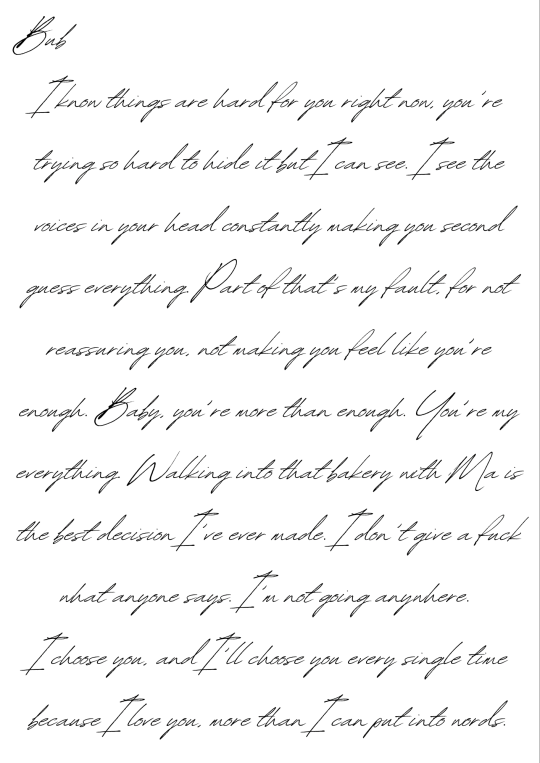 Bub
I know things are hard for you right now, you're
trying so hard to hide it but I can see. I see the
voices in your head constantly making you second
guess everything. Part of that's my fault, for not
reassuring you, not making you feel like you're
enough. Baby, you're more than enough. You're my
everything. Walking into that bakery with Ma is
the best decision I've ever made. I don't give a fuck
what anyone says. I'm not going anywhere.
I choose you, and I'll choose you every single time
because I love you, more than I can put into words.